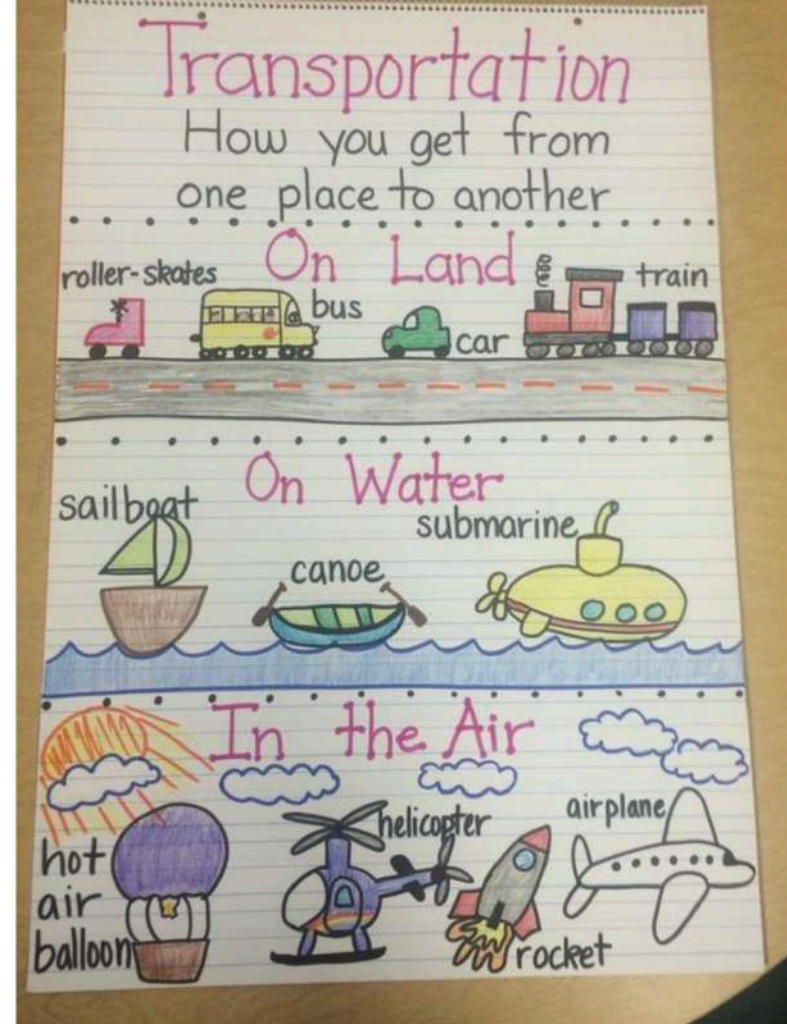 Transportation
How you get from
one place to another
On Land
roller-skates
bus
car
train
On Water
sailboat
canoe
submarine
In the Air
hot
air
balloon
helicopter
rocket
airplane